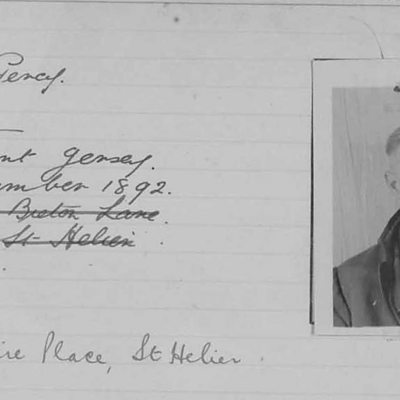 Percy.
Jersey.
1892.
Breton Lane.
St Helier
Place, St Helier.